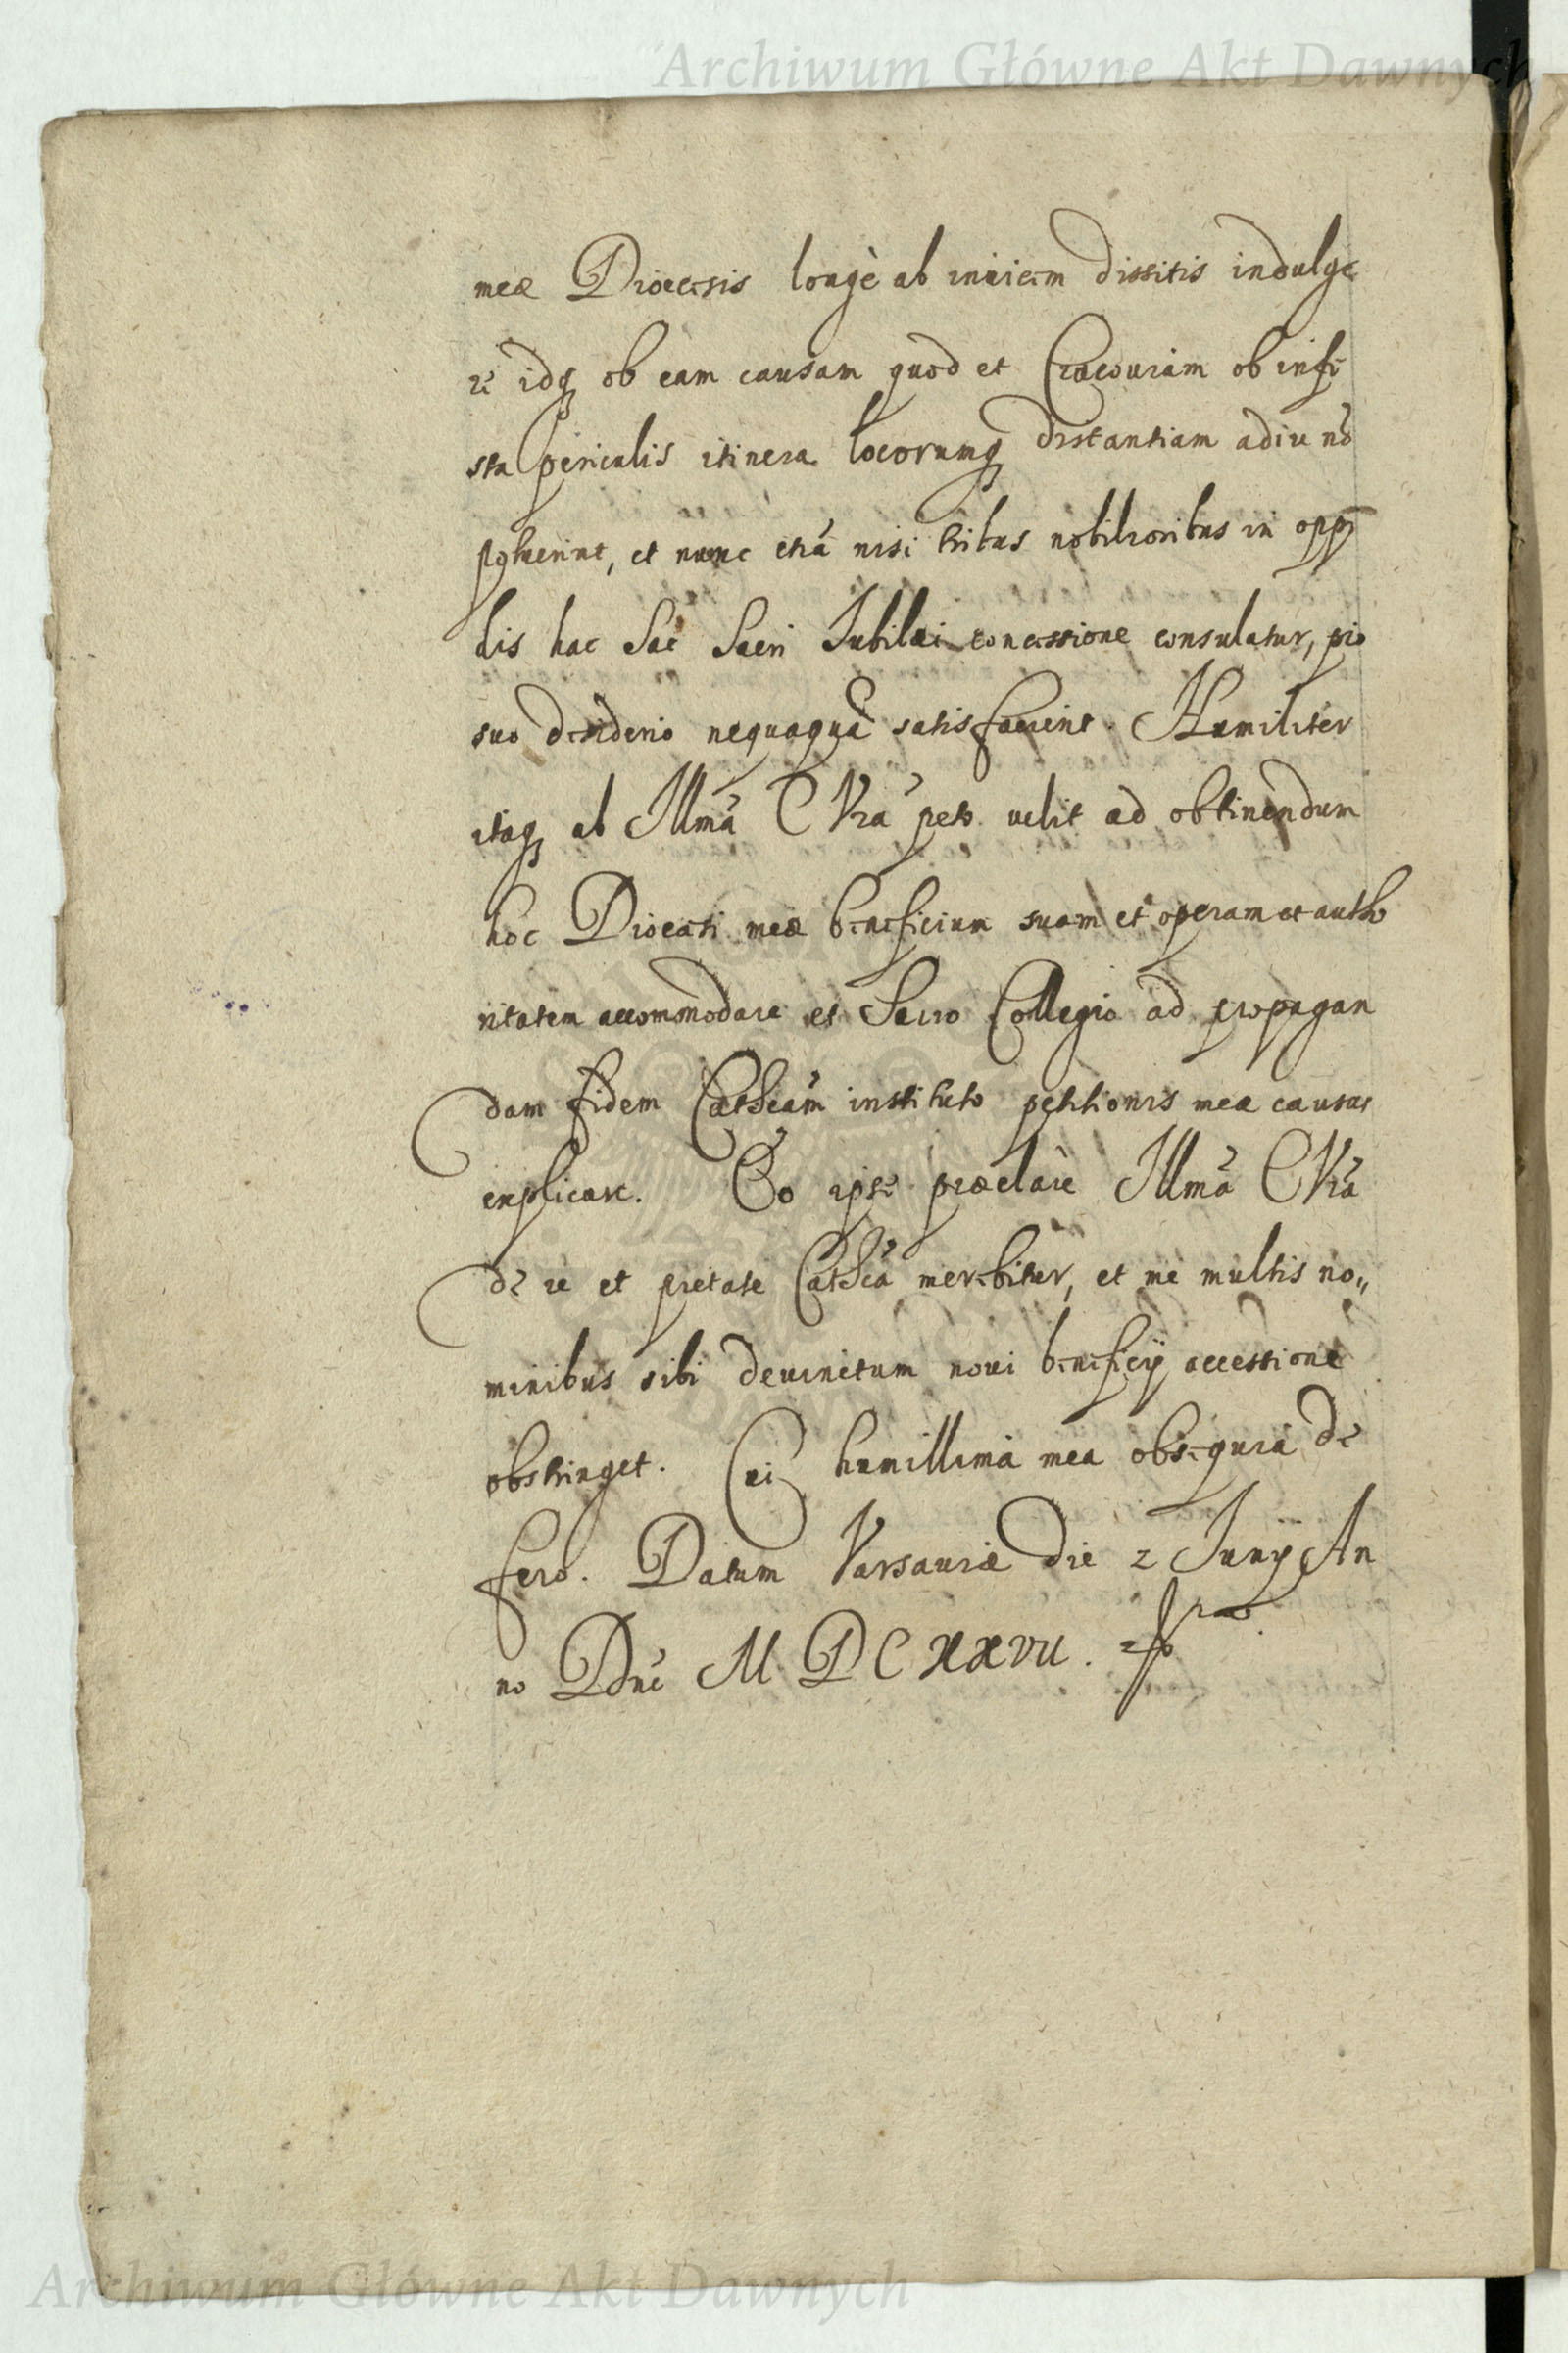 Archiwum Główne Akt Dawnych
meæ Diocesis longè ab inuicem dissitis indulge
re idq ob eam causam quod et Cracouiam ob infe
sta periculis itinera locorumq distantiam adiu nō
potuerint, et nunc etiā nisi tribus nobilioribus in oppi
dis hac Sac Sacri Iubilæi concessione consulatur, pio
suo desiderio nequaquā satisfacient. Humiliter
itaq ab Illmā C Vrā peto velit ad obtinendum
hoc Diocesi meæ beneficium suam et operam et autho
ritatem accommodare et Sacro Collegio ad propagan
dam fidem Cathcām instituto petitionis meæ causas
explicare. Eo ipse præclare Illmā C Vrā
de re et pietate Cathcā merebitur, et me multis no„
minibus sibi deuinctum noui beneficij accessione
obstringet. Cui humillima mea obsequia de
fero. Datum Varsauiæ die 2 Junij An
no Dnī MDCXXVII.
Archiwum Główne Akt Dawnych